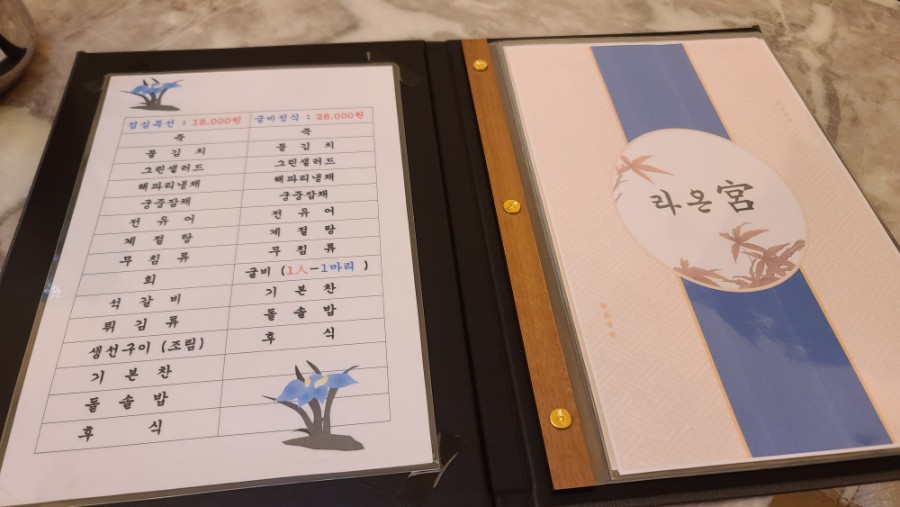 점심특선 : 18.000원 굴비정식 : 28.000원
죽 죽
물 김 치 물 김 치
그린샐러드 그린샐러드
해파리냉채 해파리냉채
궁중잡채 궁중잡채
전 유 어 전 유 어
계 절 탕 계 절 탕
무 침 류 무 침 류
회 굴비 (1人-1마리 )
석 갈 비 기 본 찬
튀 김 류 돌 솥 밥
생선구이 (조림) 후 식
기 본 찬
돌 솥 밥
후 식
라온宮